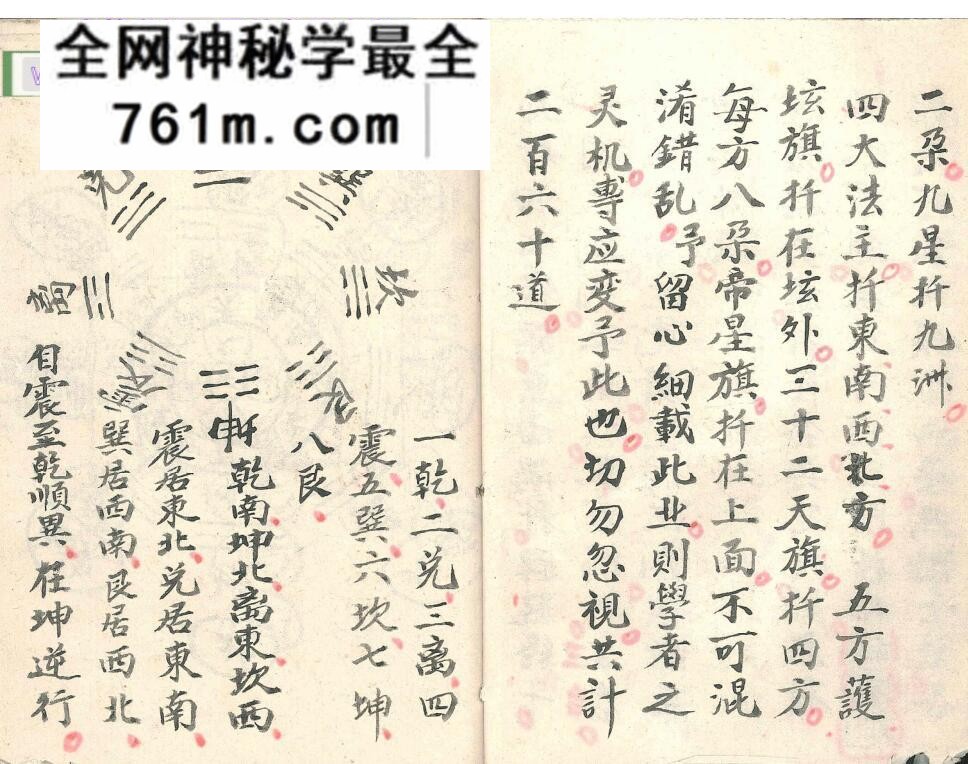 全网神秘学最全
761m.com
二朶九星扦九洲
四大法主扦東南西北方 五方護
坛旗扦在坛外三十二天旗扦四方
每方八朶帝星旗扦在上面不可混
淆錯乱予留心細載此业則學者之
灵机專应变予此也切勿忽視共計
二百六十道
兑
巽
离
坎
震
艮
坤
一乾二兑三离四
震五巽六坎七坤
八艮
乾南坤北离東坎西
震居東北兑居東南
巽居西南艮居西北
自震至乾順異在坤逆行